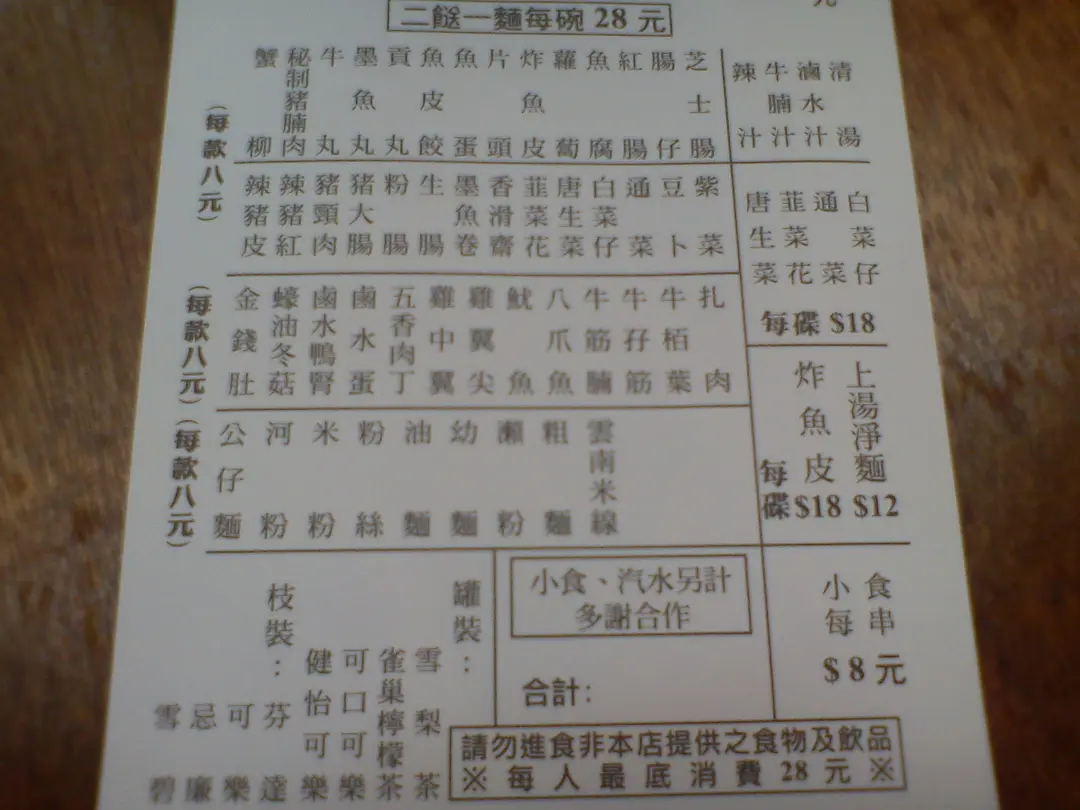 元
二餸一麵每碗 28 元
清湯
滷水汁
牛腩汁
辣汁
芝士腸
腸仔
紅腸
魚腐
蘿蔔
炸魚皮
片頭
魚蛋
魚皮餃
貢丸
墨魚丸
牛丸
秘制豬腩肉
蟹柳
紫菜
豆卜
通菜
白菜仔
唐生菜
韮菜花
香滑齋
墨魚卷
生腸
粉腸
豬大腸
豬頸肉
辣豬紅
辣豬皮
(每款八元)
白菜仔
通菜
韮菜花
唐生菜
每碟 $18
扎肉
牛栢葉
牛孖筋
牛筋腩
八爪魚
魷魚
雞翼尖
雞中翼
五香肉丁
鹵水蛋
鹵水鴨腎
蠔油冬菇
金錢肚
(每款八元)
上湯淨麵 $12
炸魚皮 每碟 $18
雲南米線
粗麵
瀨粉
幼麵
油麵
粉絲
米粉
河粉
公仔麵
(每款八元)
小食
每串
$ 8 元
小食、汽水另計
多謝合作
合計:
罐裝:
雪梨茶
雀巢檸檬茶
可口可樂
健怡可樂
枝裝:
芬達
可樂
忌廉
雪碧
請勿進食非本店提供之食物及飲品
※ 每人最底消費 28 元 ※